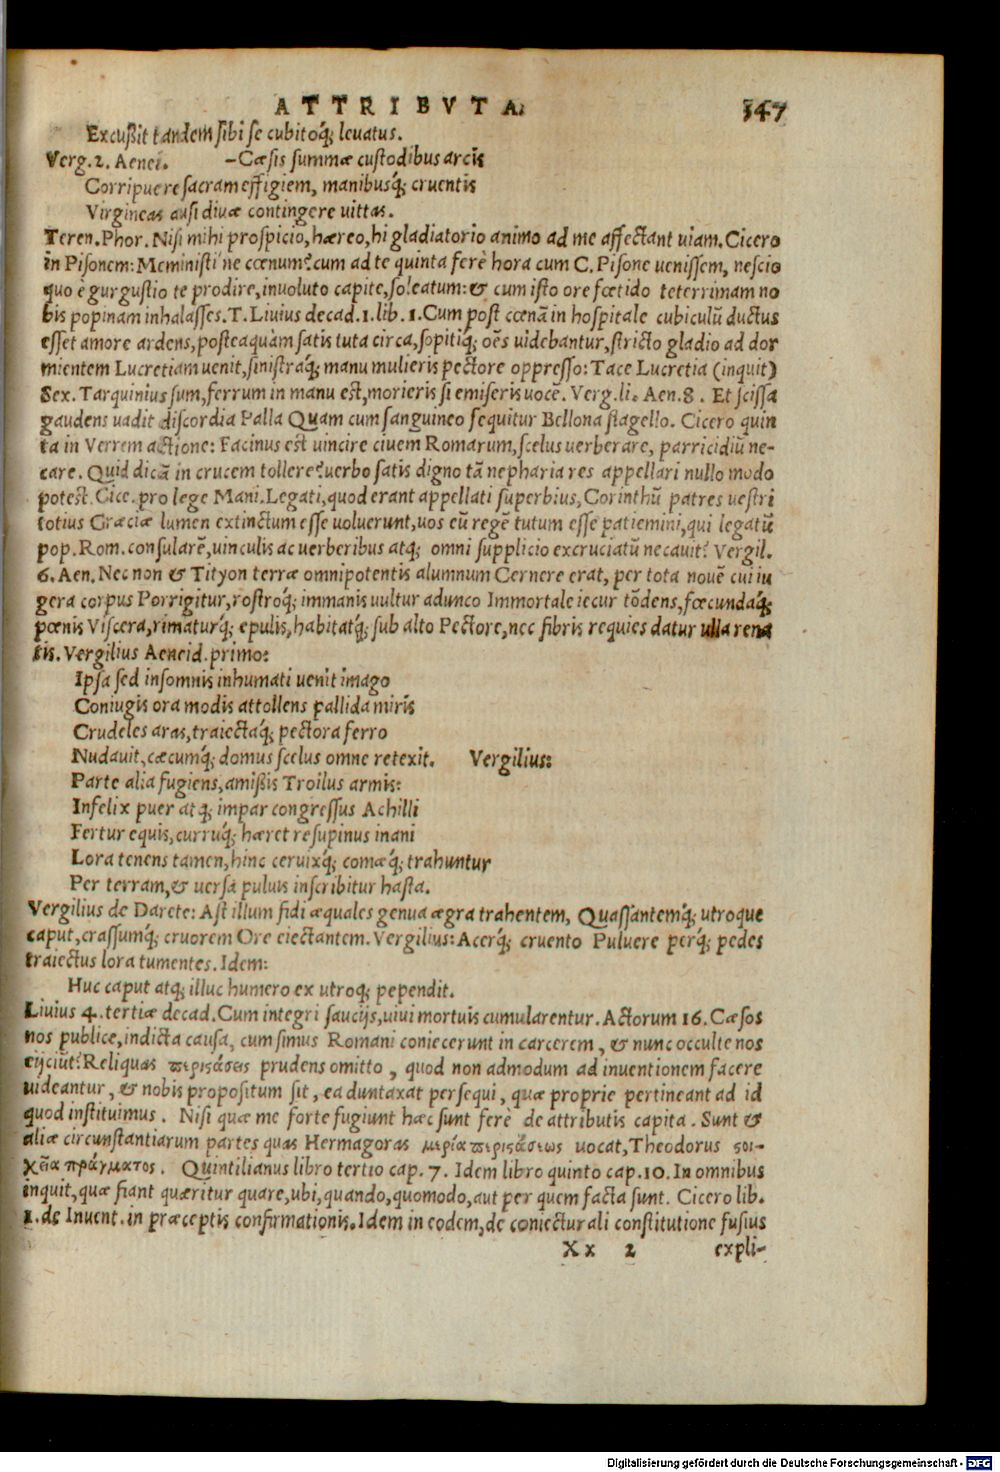 ATTRIBVTA. 347
Excußit tandem sibi se cubitoq́; leuatus.
Verg. 2. Aenei. –Cæsis summæ custodibus arcis
Corripuere sacram effigiem, manibusq́; cruentis
Virgineas ausi diuæ contingere uittas.
Teren. Phor. Nisi mihi prospicio, hæreo, hi gladiatorio animo ad me affectant uiam. Cicero
in Pisonem: Meministi ne cœnum? cum ad te quinta ferè hora cum C. Pisone uenissem, nescio
quo è gurgustio te prodire, inuoluto capite, soleatum: & cum isto ore fœtido teterrimam no
bis popinam inhalasses. T. Liuius decad. 1. lib. 1. Cum post cœnā in hospitale cubiculū ductus
esset amore ardens, posteaquàm satis tuta circa, sopitiq́; oēs uidebantur, stricto gladio ad dor
mientem Lucretiam uenit, sinistraq́; manu mulieris pectore oppresso: Tace Lucretia (inquit)
Sex. Tarquinius sum, ferrum in manu est, morieris si emiseris uocē. Verg. li. Aen. 8. Et scissa
gaudens uadit discordia Palla Quam cum sanguineo sequitur Bellona flagello. Cicero quin
ta in Verrem actione: Facinus est uincire ciuem Romarum, scelus uerberare, parricidiū ne-
care. Quid dicā in crucem tollere? uerbo satis digno tā nepharia res appellari nullo modo
potest. Cice. pro lege Mani. Legati, quod erant appellati superbius, Corinthū patres uestri
totius Græciæ lumen extinctum esse uoluerunt, uos eū regē tutum esse patiemini, qui legatū
pop. Rom. consularē, uinculis ac uerberibus atq; omni supplicio excruciatū necauit? Vergil.
6. Aen. Nec non & Tityon terræ omnipotentis alumnum Cernere erat, per tota nouē cui iu
gera corpus Porrigitur, rostroq́; immanis uultur adunco Immortale iecur tōdens, fœcundaq́;
pœnis Viscera, rimaturq́; epulis, habitatq́; sub alto Pectore, nec fibris requies datur ulla rena
tis. Vergilius Aeneid. primo:
Ipsa sed in somnis inhumati uenit imago
Coniugis ora modis attollens pallida miris
Crudeles aras, traiectaq́; pectora ferro
Nudauit, cæcumq́; domus scelus omne retexit. Vergilius:
Parte alia fugiens, amißis Troilus armis:
Infelix puer atq; impar congressus Achilli
Fertur equis, curruq́; hæret resupinus inani
Lora tenens tamen, hinc ceruixq́; comæq́; trahuntur
Per terram, & uersa puluis inscribitur hasta.
Vergilius de Darete: Ast illum fidi æquales genua ægra trahentem, Quassantemq́; utroque
caput, crassumq́; cruorem Ore eiectantem. Vergilius: Aterq́; cruento Puluere perq́; pedes
traiectus lora tumentes. Idem:
Huc caput atq; illuc humero ex utroq; pependit.
Liuius 4. tertiæ decad. Cum integri saucijs, uiui mortuis cumularentur. Actorum 16. Cæsos
nos publice, indicta causa, cum simus Romani coniecerunt in carcerem, & nunc occulte nos
eijciūt? Reliquas περιστάσεις prudens omitto, quod non admodum ad inuentionem facere
uideantur, & nobis propositum sit, ea duntaxat persequi, quæ proprie pertineant ad id
quod instituimus. Nisi quæ me forte fugiunt hæc sunt ferè de attributis capita. Sunt &
aliæ circunstantiarum partes quas Hermagoras μερία περιστάσεως uocat, Theodorus ϛοι-
χεῖα πράγματος. Quintilianus libro tertio cap. 7. Idem libro quinto cap. 10. In omnibus
inquit, quæ fiant quæritur quare, ubi, quando, quomodo, aut per quem facta sunt. Cicero lib.
1. de Inuent. in præceptis confirmationis. Idem in eodem, de coniecturali constitutione fusius
Xx 2 expli-
Digitalisierung gefördert durch die Deutsche Forschungsgemeinschaft - DFG